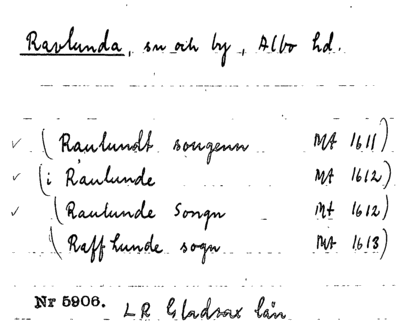 Ravlunda, sn och by, Albo hd.
✓ (Raulundt sougenn MA 1611)
✓ (i Raulunde MA 1612)
✓ (Raulunde Songn MA 1612)
(Raff lunde sogn MA 1613)
Nr 5906. LR Gladsax län